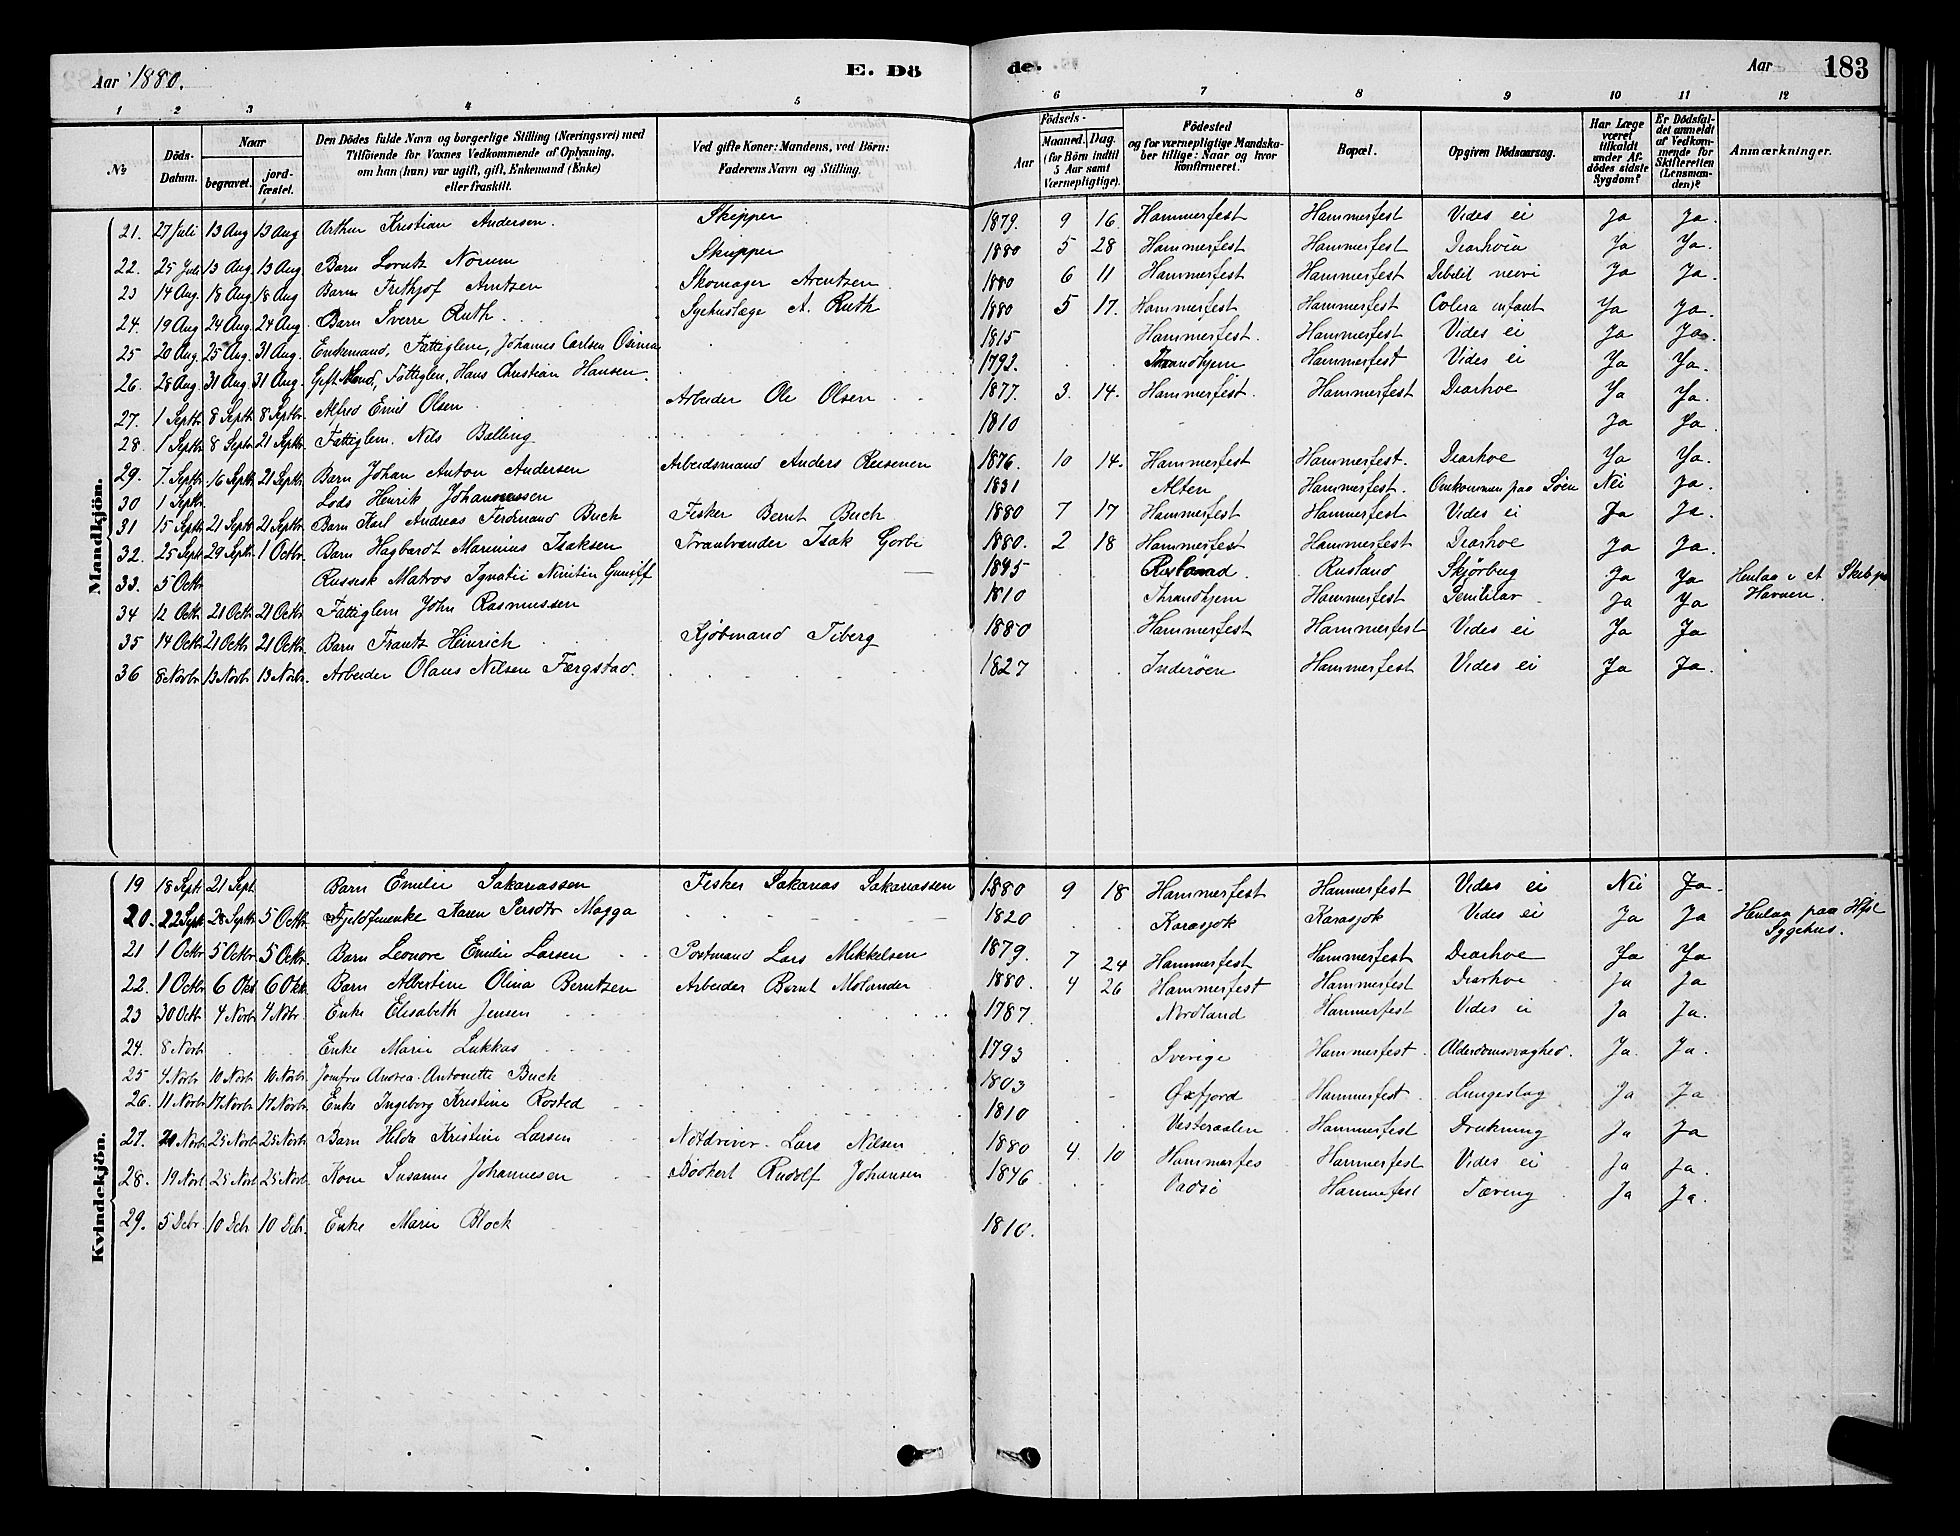 Aar 1880.
E. Dö
de.
Aar
183
1 2 3 4 5 6 7 8 9 10 11 12
№
Döds-Datum.
Naar
begravet.
jord-fæstet.
Den Dödes fulde Navn og borgerlige Stilling (Næringsvei) med
Tilföiende for Voxnes Vedkommende af Oplysning,
om han (hun) var ugift, gift, Enkemand (Enke)
eller fraskilt.
Ved gifte Koner: Mandens, ved Börn:
Faderens Navn og Stilling.
Födsels-
Aar
Maaned. Dag.
(for Börn indtil
5 Aar samt
Værnepligtige).
Födested
og for værnepligtige Mandska-
ber tillige: Naar og hvor
konfirmeret.
Bopæl.
Opgiven Dödsaarsag.
Har Læge
været
tilkaldt
under Af-
dödes sidste
Sygdom?
Er Dödsfal-
det anmeldt
af Vedkom-
mende for
Skifteretten
(Lensman-
den)?
Anmærkninger.
Mandkjön.
21. 27 Juli 13 Aug 13 Aug Arthur Kristian Andersen. Skipper 1879. 9 16. Hammerfest Hammerfest Vides ei Ja Ja.
22. 25 Juli 13 Aug. 13 Aug. Barn Lorentz Norum Skipper 1880 5 28 Hammerfest Hammerfest Diarhöia Ja Ja.
23 14 Aug. 18 Aug 18 Aug Barn Frithjof Arntzen Skomager Arentzen 1880 6 11 Hammerfest Hammerfest Debilit Ja Ja.
24. 19 Aug 24 Aug. 24 Aug. Barn Sverre Ruth Sygehuslæge A. Ruth 1880 5 17. Hammerfest Hammerfest Colera infant Ja Ja.
25 20 Aug. 25 Aug. 31 Aug. Enkemand, Fattiglem, Johannes Carlsen 1815 Hammerfest. Hammerfest Vides ei Ja Ja.
26. 28 Aug. 31 Aug. 31 Aug. Gift Mand, Fattiglem, Hans Christian Hansen. 1792. Throndhjem Hammerfest Vides ei Ja Ja.
27. 1 Septbr. 8 Septbr 8 Septbr. Alfred Emil Olsen Arbeider Ole Olsen 1877. 3. 14. Hammerfest. Hammerfest Diarhoe Ja Ja.
28. 1 Septbr. 8 Septbr 21 Septbr. Fattiglem. Nils Balling 1810 Ja Ja.
29. 7. Septbr. 16 Septbr. 21 Septbr. Barn Johan Anton Andersen Arbeidsmand Anders 1876. 10 14. Hammerfest Hammerfest. Diarhoe Ja Ja.
30 1 Septbr. Lods Henrik Johannessen 1831 Alten Hammerfest. Omkommen paa Söen Nei Ja.
31 15 Septbr 21 Septbr. 21 Septbr. Barn Karl Andreas Ferdinand Buck Fisker Bernt Buck 1880 7 17 Hammerfest Hammerfest Vides ei Ja Ja.
32. 25 Septbr. 29 Septbr. 1 Octbr. Barn Hagbardt Marinius Isaksen Tranbrænder Isak Gorbi 1880. 2 18 Hammerfest Hammerfest Diarhoe Ja Ja.
33. 5 Octbr Russisk Matros Ignatii Rusland. Rusland Skjörbug Ja Ja Henlaa i et Skib paa
Havnen.
34 12 Octbr. 21 Octbr 21 Octbr. Fattiglem John Rasmussen 1810 Throndhjem Hammerfest Ja Ja
35 14 Octbr. 21 Octbr 21 Octbr. Barn Frantz Heinrich Kjöbmand Tiberg 1880 Hammerfest Hammerfest Vides ei Ja Ja
36 8 Novbr 13 Novbr 13 Novbr. Arbeider Olaus Nilsen Færgstad. 1827 Inderöen Hammerfest Vides ei Ja Ja.
Kvindekjön.
19 18 Septbr. 21 Sept. Barn Emilie Sakariassen Fisker Sakarias Sakariassen 1880 9 18 Hammerfest Hammerfest Vides ei Nei Ja.
20. 22 Septbr 28 Septbr. 5 Octbr. Fjeldfinenke Karen Persdtr Magga 1820 Karasjok Karasjok Vides ei Ja Ja Henlaa paa Hfst
Sygehus.
21 1 Octbr 5 Octbr 5 Octbr. Barn Leonore Emilie Larsen Postmand Lars Mikkelsen 1879. 7 24 Hammerfest Hammerfest Diarhoe Ja Ja
22. 1 Octbr 6 Okt 6 Oktbr. Barn Albertine Olina Berntzen Arbeider Bernt Molander 1880. 4 26 Hammerfest Hammerfest Diarhoe Ja Ja
23 30 Octbr. 4 Novbr 4 Nobr. Enke Elisabeth Jensen 1787. Nordland Hammerfest Vides ei Ja Ja.
24. 8 Novbr Enke Marie Lukkas 1793 Sverige Hammerfest. Alderdomssvaghed. Ja. Ja.
25 4 Novbr 10 Novbr. 10 Novbr. Jomfru Andrea Antonette Buck 1803 Öxfjord Hammerfest Lungeslag Ja Ja
26. 11 Novbr 17 Novbr. 17 Novbr. Enke Ingeborg Kristine Rosted 1810 Vesteraalen Hammerfest Ja Ja
27. 20 Novbr. 25 Novbr. 25 Novbr. Barn Hilda Kristine Larsen Lars Nilsen 1880 4. 10 Hammerfes Hammerfest Vides ei Ja Ja.
28. 19 Novbr. 25 Novbr. 25 Novbr. Kone Susanne Johannesen Rudolf Johansen 1846 Vadsö Hammefest Tæring Ja Ja.
29. 5 Debr 10 Debr 10 Debr. Enke Marie Block 1810.